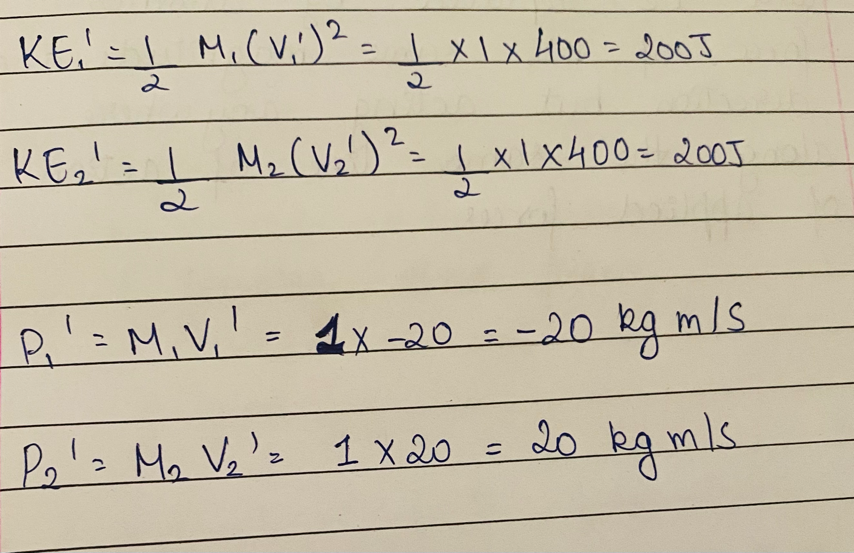 KE₁' = 1/2 M₁(V₁')² = 1/2 × 1 × 400 = 200J
KE₂' = 1/2 M₂(V₂')² = 1/2 × 1 × 400 = 200J
P₁' = M₁V₁' = 1 × -20 = -20 kg m/s
P₂' = M₂ V₂' = 1 × 20 = 20 kg m/s